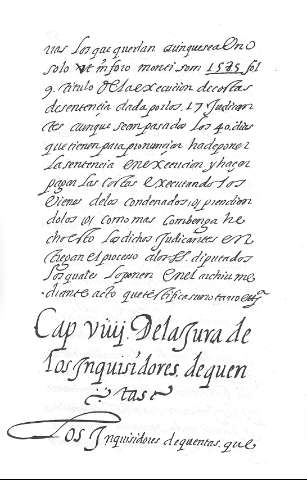 uas los que querian aunque sea en o
solo vt in foro monei som 1585 fol
9. titulo De la execucion de costas
de sentencia dada por los .17 Judican
tes aunque sean pasados los 40. dias
que tienen para pronunciar ha de poner
la sentencia en execucion y haçer
pagar las costas executando los
bienes de los condenados o prendien
dolos o como mas combenga he
cho esto los dichos Judicantes en
tregan el proceso a los SS. diputados
los quales lo ponen en el archiu me
diante acto que testifica su notario ettª
Cap viiij. De la Jura de
los Inquisidores. de quen
tas
Los Inquisidores de quentas. que